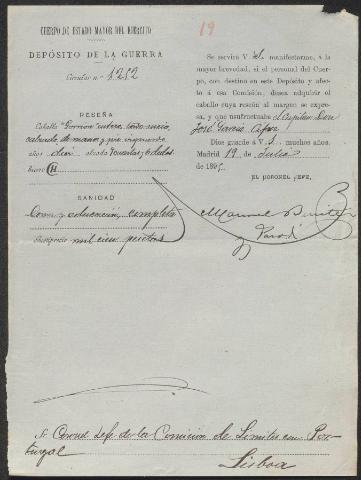 CUERPO DE ESTADO MAYOR DEL EJERCITO
DEPÓSITO DE LA GUERRA
Circular n.º 1252
RESEÑA
Caballo
años diez alzada
hierro CH
SANIDAD
Doma y educación, completa
Su precio mil cien pesetas
19
Se servirá V. S. manifestarme, á
la mayor brevedad, si el personal del Cuer-
po, con destino en este Depósito y afec-
to á esa Comisión, desea adquirir el
caballo cuya reseña al margen se expre-
sa, y que usufructuaba el Capitán Don
José García
Dios guarde á V. S. muchos años.
Madrid 19 de Julio
de 189
EL CORONEL JEFE,
Manuel Benitez
y Parodi
Sr. Coronel Jefe de la Comision de Limites con Por-
tugal
Lisboa